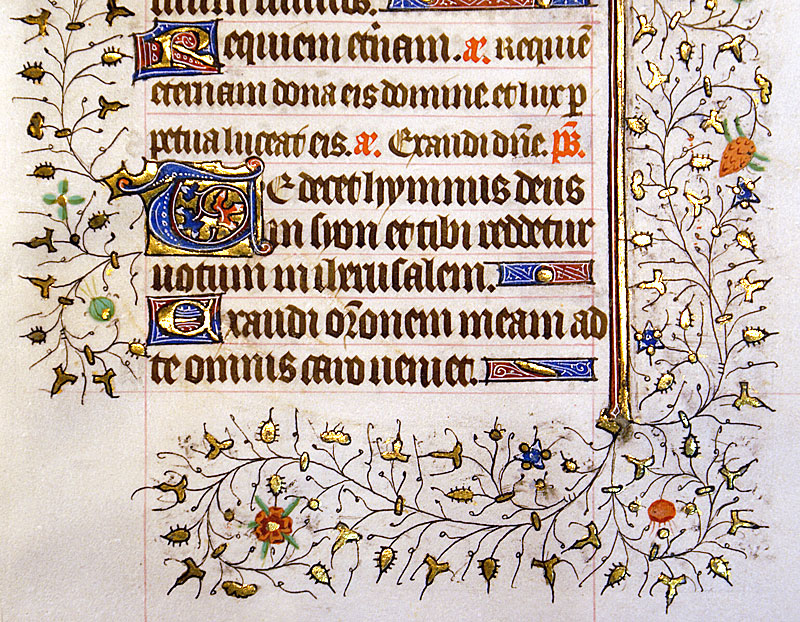 Requiem et̄nam. a͞. Requiē
eternam dona eis domine. et lux p
petua luceat eis. a͞. Exaudi dn̄e. ps̄.
Te decet hymnus deus
in syon et tibi reddetur
uotum in ihrusalem.
Exaudi or̄onem meam ad
te omnis caro ueniet.